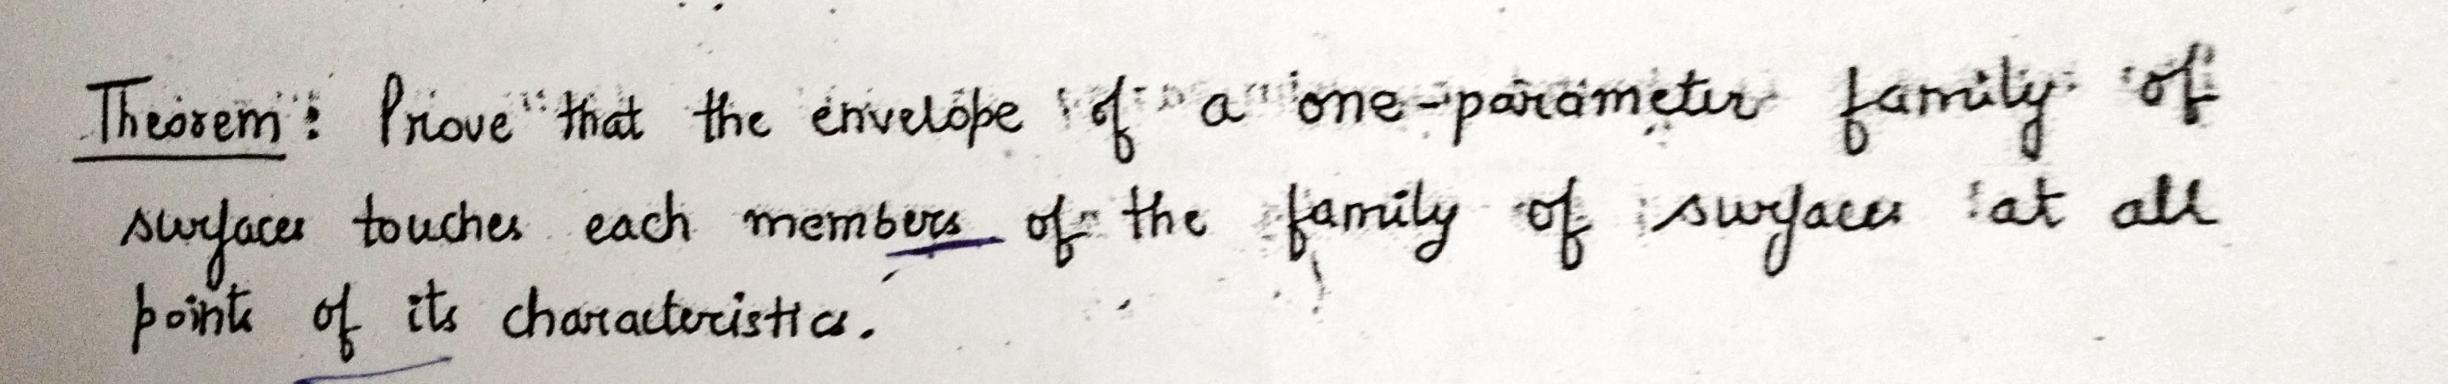 Theorem : Prove that the envelope of a one-parameter family of
surfaces touches each members of the family of surfaces at all
points of its characteristics.